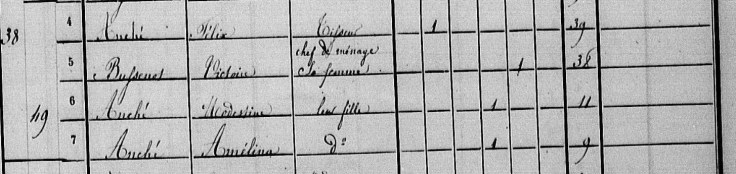 38 4 Anché Félix Tisseur 1 39
chef de ménage
5 Bussenet Victoire Sa femme 1 38
49 6 Anché Modestine leur fille 1 11
7 Anché Amélina d° 1 9